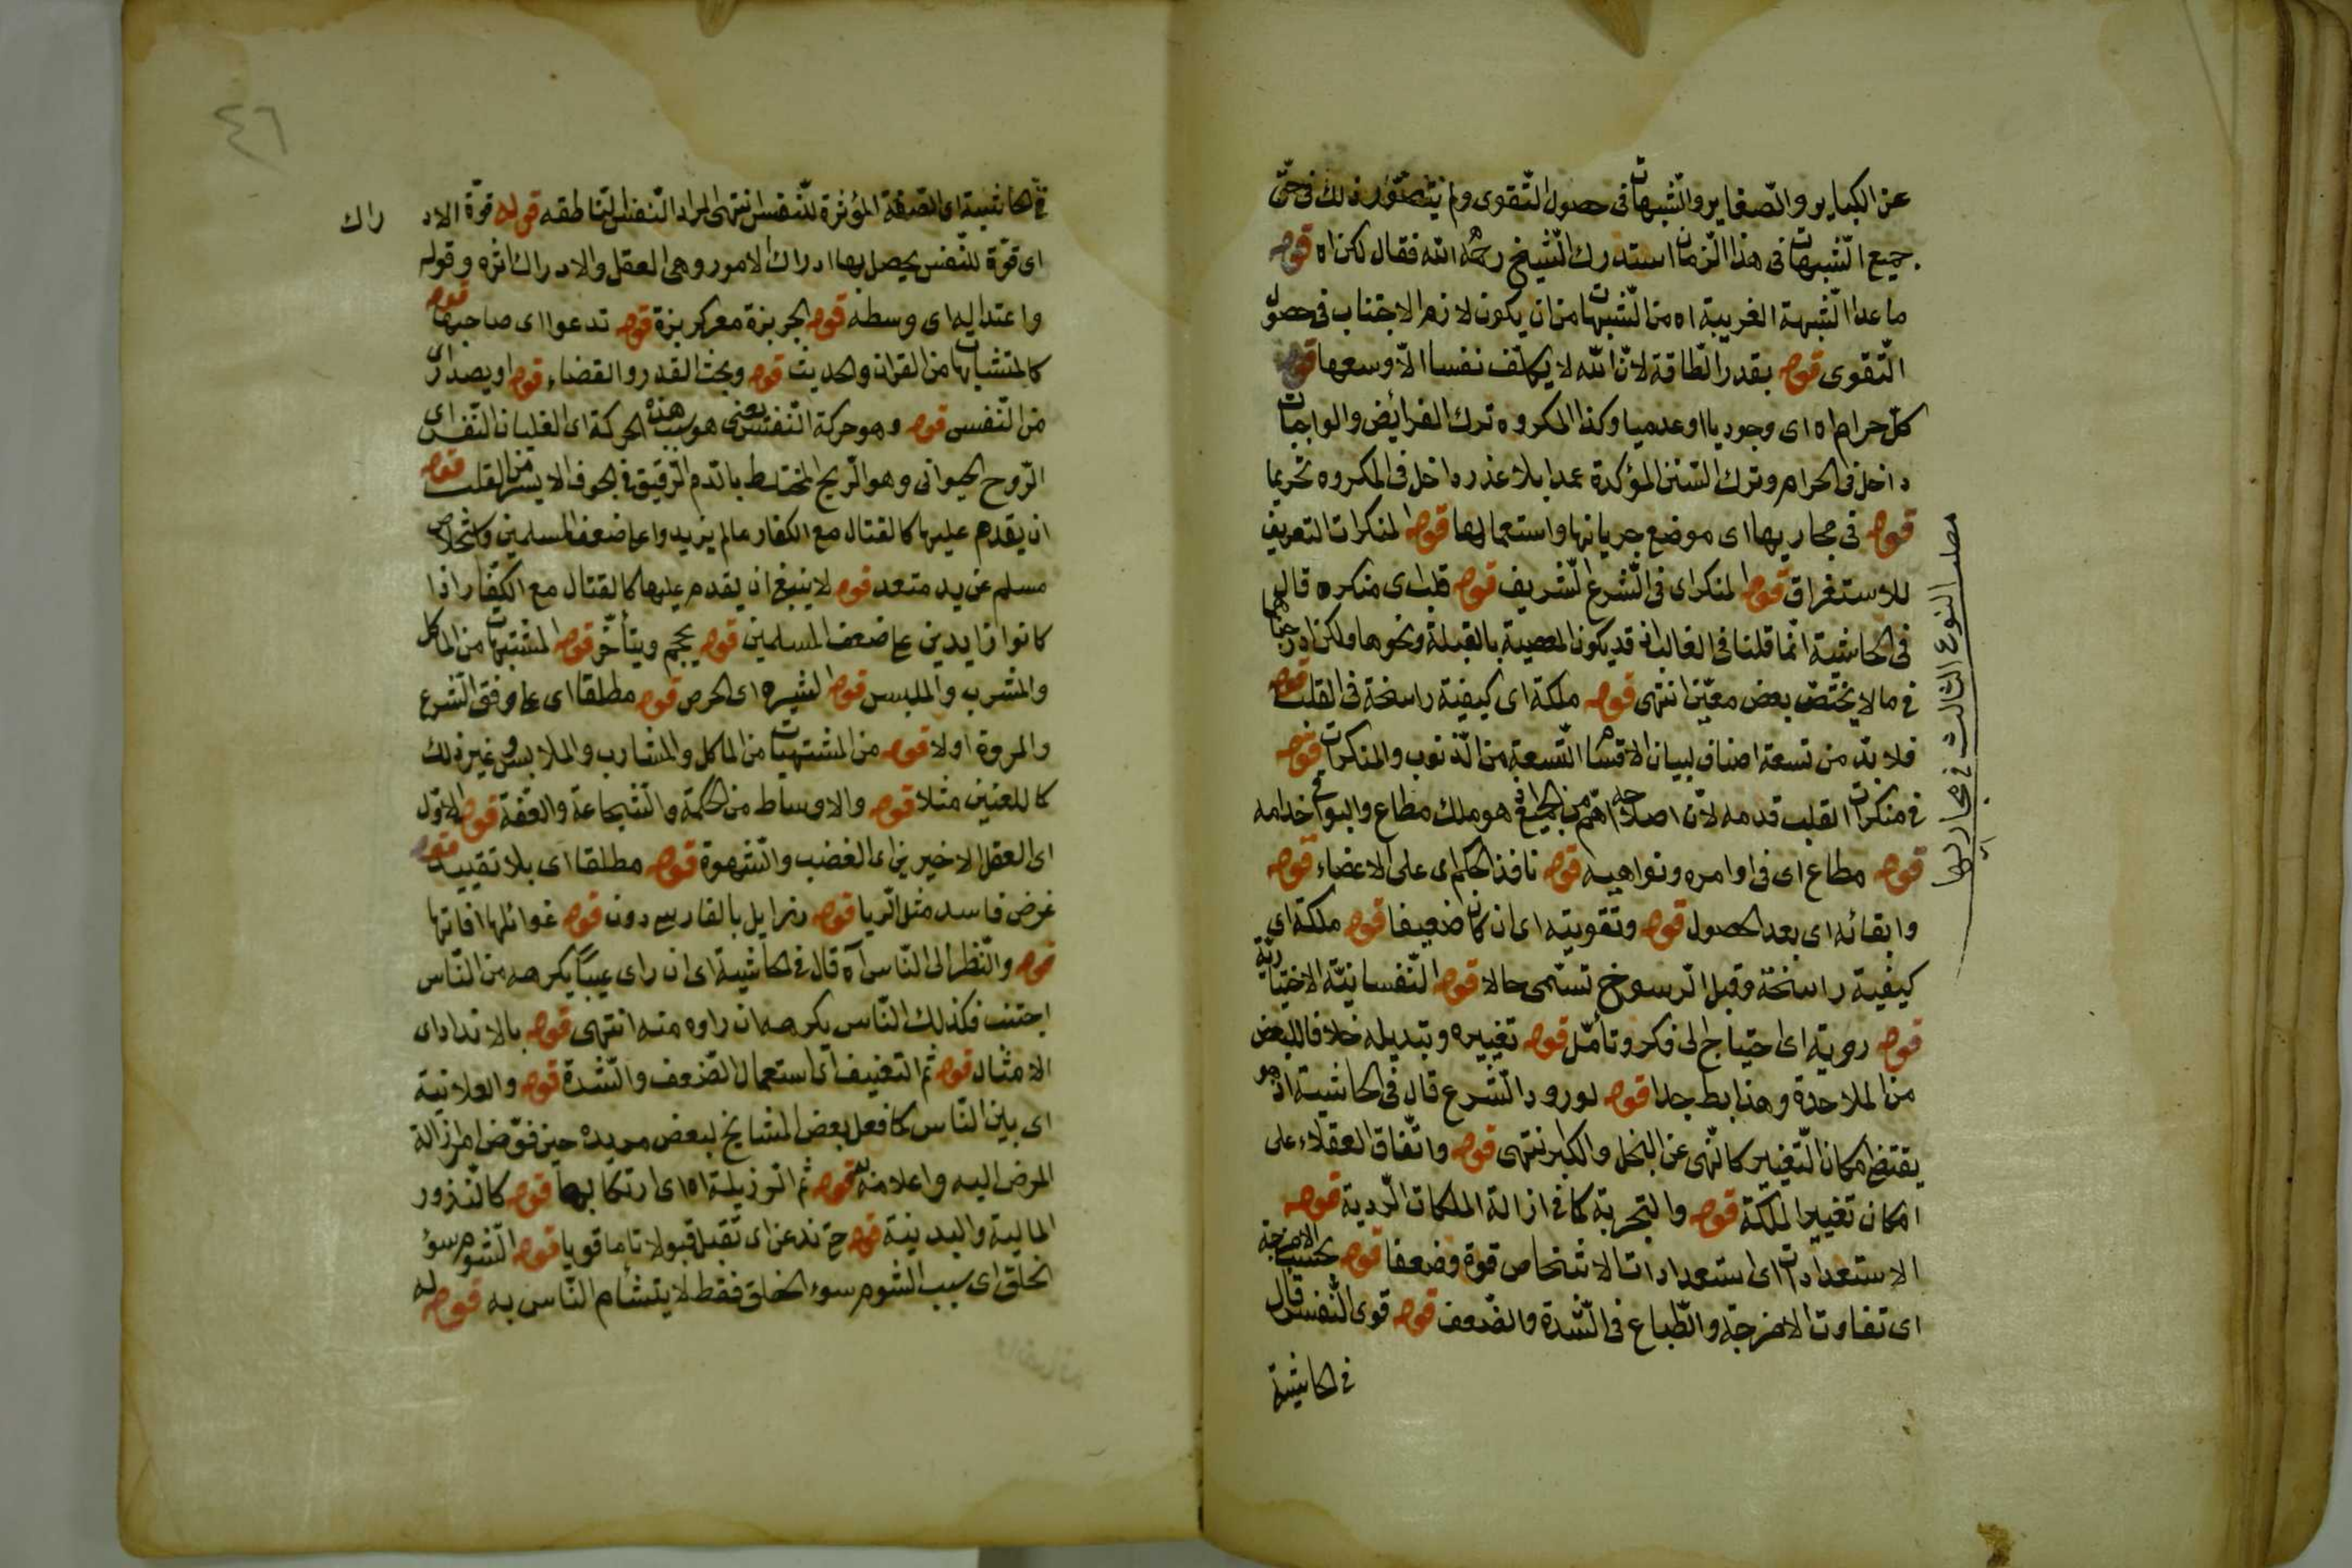 عن الكباير والصغاير والشبهات فى حصول التقوى ولم يتصور ذلك فى حق
جميع الشبهات فى هذا الزمان استدرك الشيخ رحمه الله فقال لكن اه قوله
ما عدا الشبهة القريبة اه من الشبهات من ان يكون لازم الاجتناب فى حصول
التقوى قوله بقدر الطاقة لان الله لا يكلف نفسا الا وسعها قوله
كل حرام اه اى وجوديا او عدميا وكذا المكروه ترك الفرائض والواجبات
داخل فى الحرام وترك السنن المؤكدة عمدا بلا عذر داخل فى المكروه تحريما
قوله فى مجاريها اى موضع جريانها واستعمالها قوله المنكرات التعريف
للاستغراق قوله المنكر اى فى الشرع الشريف قوله قلب اى منكره قال
فى الحاشية انما قلنا فى الغالب اذ قد يكون المعصية بالقبلة ونحوها ولكن ادرجناها
فى ما لا يختص بعض معين انتهى قوله ملكة اى كيفية راسخة فى القلب قوله
فلا بد من تسعة اصناف لبيان الاقسام التسعة من الذنوب والمنكرات قوله
فى منكرات القلب قدمه لان اصلاحه اهم من الجميع اذ هو ملك مطاع والبواقى خدامه
قوله مطاع اى فى اوامره ونواهيه قوله نافذ الحكم اى على الاعضاء قوله
وابقائه اى بعد الحصول قوله وتقويته اى ان كان ضعيفا قوله ملكة اى
كيفية راسخة وقبل الرسوخ تسمى حالا قوله النفسانية الاختيارية
قوله روية اى احتياج الى فكر وتأمل قوله تغييره وتبديله خلافا للبعض
من الملاحدة وهذا بط جدا قوله لورود الشرع قال فى الحاشية اذ هو
يقتضى امكان التغيير كالنهى عن البخل والكبر انتهى قوله واتفاق العقلاء على
امكان تغيير الملكة قوله والتجربة كما فى ازالة الملكات الردية قوله
الاستعدادات اى استعدادات الاشخاص قوة وضعفا قوله بحسب الامزجة
اى تفاوت الامزجة والطباع فى الشدة والضعف قوله قوى النفس قال
فى الحاشية
النوع الثالث فى مجاريها
٤٦
فى الحاشية اى الصفة المؤثرة للنفس انتهى المراد النفس الناطقه قوله قوة الادراك
اى قوة للنفس يحصل بها ادراك الامور وهى العقل والادراك اثره وقوله
واعتداله اى وسطه قوله الجربزة معرب كربزة قوله تدعوا اى صاحبها قوله
كالمتشابهات من القران والحديث قوله وبحث القدر والقضاء قوله او يصدر اى
من النفس قوله وهو حركة النفس يعنى هو سبب هذه الحركة اى الغليان النفس اى
الروح الحيوانى وهو الريح المختلط بالدم الرقيق فى الجوف الايسر من القلب قوله
ان يقدم عليها كالقتال مع الكفار مالم يزيدوا على ضعف المسلمين وكتخلاص
مسلم عن يد متعد قوله لا ينبغ ان يقدم عليها كالقتال مع الكفار اذا
كانوا زايدين على ضعف المسلمين قوله يحجم ويتأخر قوله المشتهيات من المأكل
والمشرب والملبس قوله الشره اى الحرص قوله مطلقا اى على وفق الشرع
والمروة او لا قوله من المشتهيات من المأكل والمشارب والملابس وغير ذلك
كاللعنين مثلا قوله والاوساط من الحكمة والشجاعة والعفة قوله الاول
اى العقل الاخيرين اى الغضب والشهوة قوله مطلقا اى بلا تقييد قوله
غرض فاسد مثل الريا قوله رذايل دون قوله غوائلها افاتها
قوله والنظر الى الناس اه قال فى الحاشية اى ان راى عيبا يكرهه من الناس
اجتنب فكذلك الناس يكرهه ان راوه منه انتهى قوله بالانداد اى
الامثال قوله ثم التعنيف اى استعمال الضعف والشدة قوله والعلانية
اى بين الناس كما فعل بعض المشايخ لبعض مريده حين فوض امر ازالة
المرض اليه واعلا منه قوله ثم الرزيلة اه اى ارتكابها قوله كالنذور
المالية والبدنية قوله حتى تذعن اى تقبل قبولا تاما قويا قوله الشوم سوء
الخلق اى سبب الشوم سوء الخلق فقط لا يتشأم الناس به قوله له